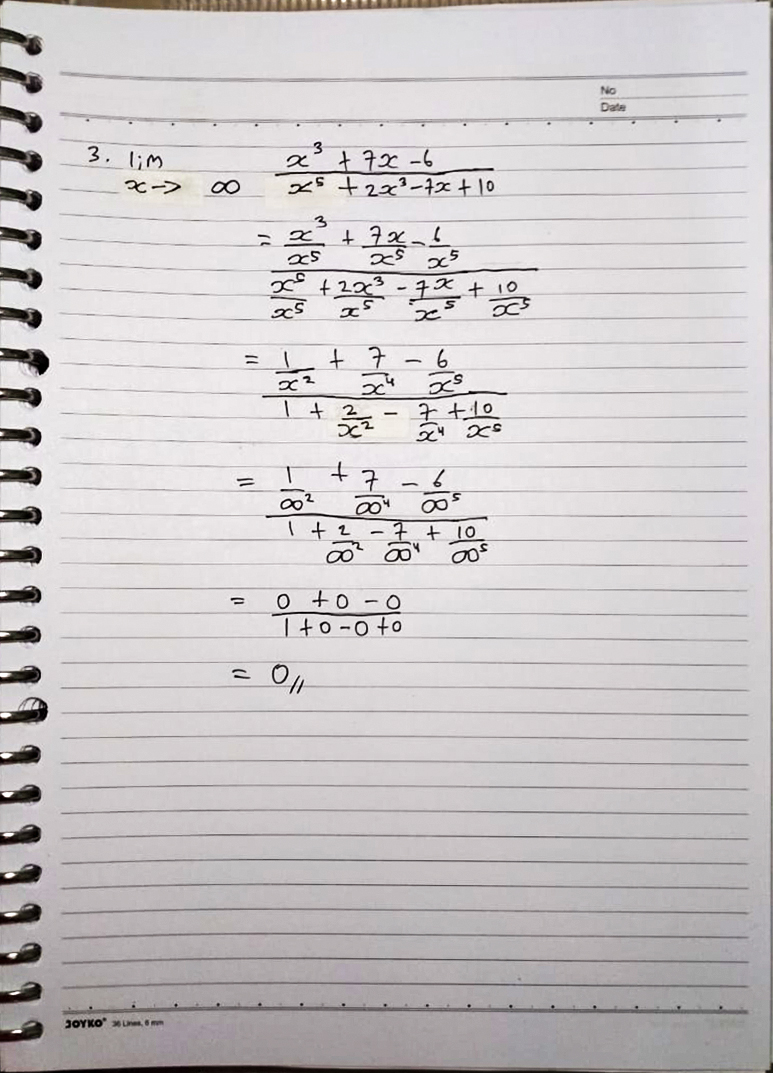 No
Date
3. lim x³ + 7x - 6
x → ∞ x⁵ + 2x³ - 7x + 10
= x³/x⁵ + 7x/x⁵ - 6/x⁵
x⁵/x⁵ + 2x³/x⁵ - 7x/x⁵ + 10/x⁵
= 1/x² + 7/x⁴ - 6/x⁵
1 + 2/x² - 7/x⁴ + 10/x⁵
= 1/∞² + 7/∞⁴ - 6/∞⁵
1 + 2/∞² - 7/∞⁴ + 10/∞⁵
= 0 + 0 - 0
1 + 0 - 0 + 0
= 0//
JOYKO® 36 Lines, 8 mm